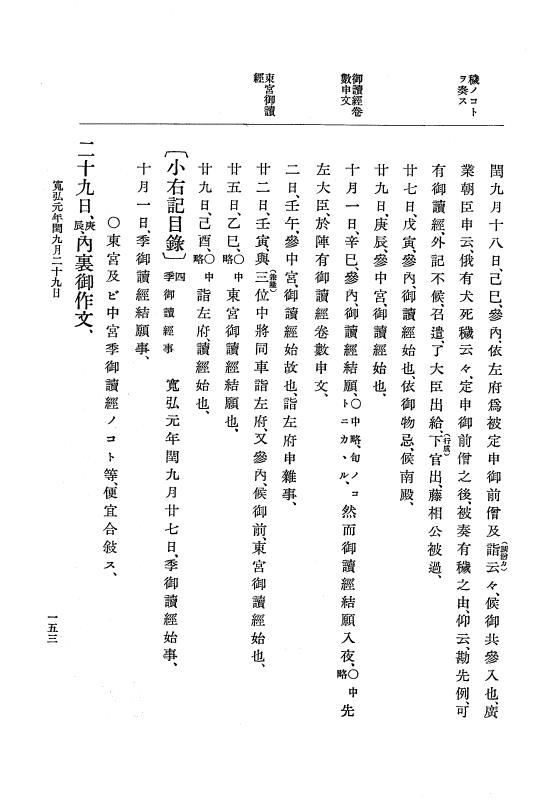 穢ノコト
ヲ奏ス
御讀經卷
數申文
東宮御讀
經
閏九月十八日、己巳、參內、依左府爲被定申御前僧及詣云々、候御共參入也、廣
(諷誦カ)
業朝臣申云、俄有犬死穢云々、定申御前僧之後、被奏有穢之由、仰云、勘先例、可
有御讀經、外記不候召遣、了大臣出給、下官出、藤相公被過、
(行成)
廿七日、戊寅、參內、御讀經始也、依御物忌、候南殿、
廿九日、庚辰、參中宮、御讀經始也、
十月一日、辛巳、參內、御讀經結願、〇中略、旬ノコトニカヽル、然而御讀經結願入夜、〇中略、先
左大臣、於陣有御讀經卷數申文、
二日、壬午、參中宮、御讀經始故也、詣左府申雜事、
廿二日、壬寅、與三位中將同車詣左府、又參內、候御前、東宮御讀經始也、
(兼隆)
廿五日、乙巳、〇中略、東宮御讀經結願也、
廿九日、己酉、〇中略、詣左府、讀經始也、
〔小右記目錄〕 四 季御讀經事 寛弘元年閏九月廿七日、季御讀經始事、
十月一日、季御讀經結願事、
〇東宮及ビ中宮季御讀經ノコト等、便宜合敍ス、
二十九日、庚辰、內裏御作文、
寛弘元年閏九月二十九日
一五三